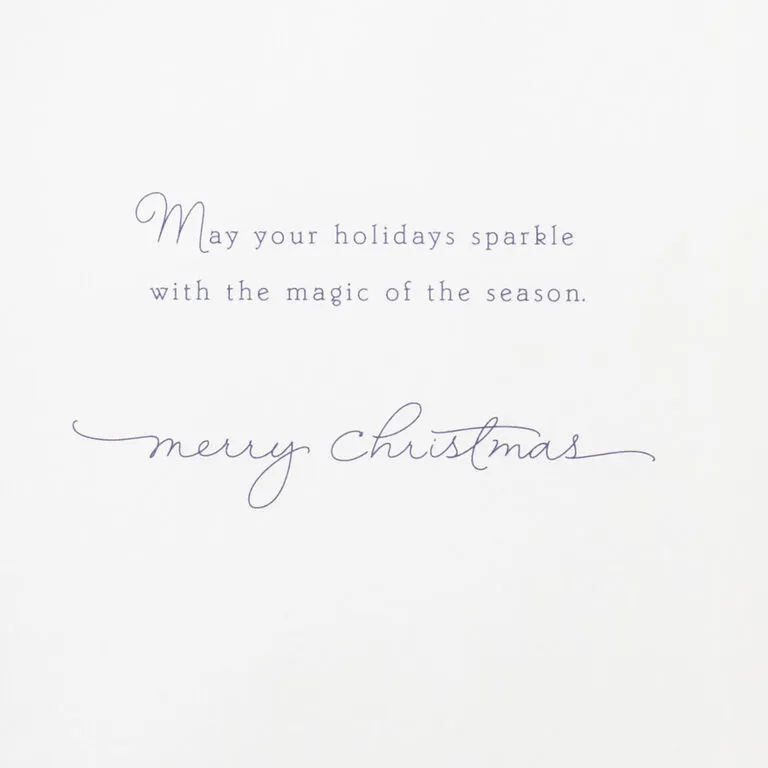 May your holidays sparkle
with the magic of the season.
merry christmas